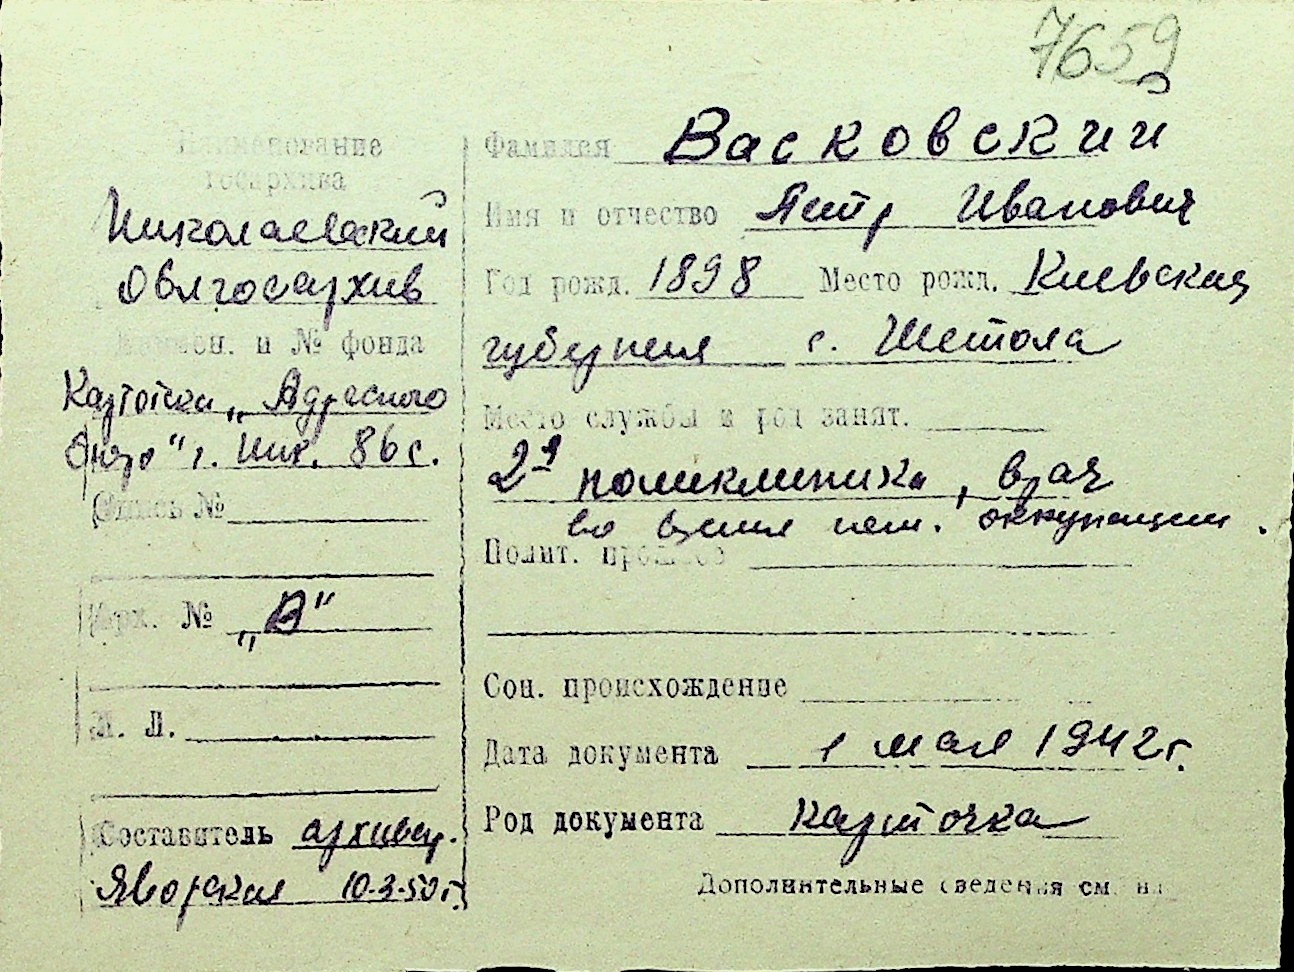 7659
Наименование
госархива
Николаевский
Облгосархив
Наимен. и № фонда
Картотека „Адресного
бюро" г. Ник. 86 с.
Опись №
Арх. № „В"
Л. Л.
Составитель архивар.
Яворская 10-3-50 г.
Фамилия Васковский
Имя и отчество Петр Иванович
Год рожд. 1898 Место рожд. Киевская
губерния с. Шетола
Место службы и род занят.
2я поликлиника, врач
во время нем. оккупации.
Полит. прошлое
Соц. происхождение
Дата документа 1 мая 1942 г.
Род документа карточка
Дополнительные сведения см. на